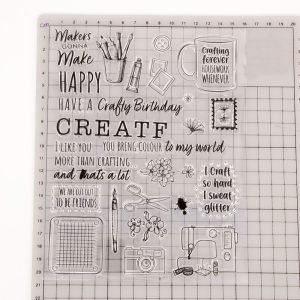 Makers
GONNA
Make
HAPPY
HAVE A Crafty Birthday
CREATE
I LIKE YOU
MORE THAN CRAFTING
and thats a lot
YOU BRING COLOUR to my world
Crafting
forever
HOUSEWORK
WHENEVER
I Craft
so hard
I sweat
glitter
WE ARE CUT OUT
TO BE FRIENDS